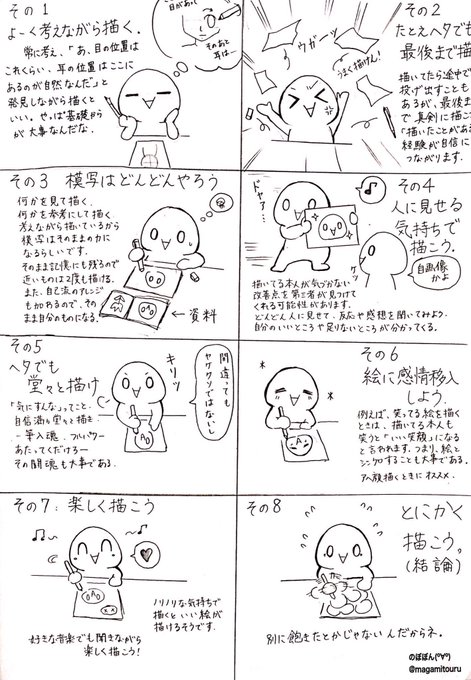 その1
よーく考えながら描く.
常に考え、「あ、目の位置は
これくらい、耳の位置はここに
あるのが自然なんだ」と
発見しながら描くと
いい。やっぱ基礎から
が大事なんだな。
目があって
そのあと
耳は…
その2
たとえヘタでも
最後まで描
ウガーッ
うまく描けん!
描いてたら途中で
投げ出すことも
あるが、最後ま
で真剣に描
「描いたことがあ
経験が自信に
つながります。
その3 模写はどんどんやろう
何かを見て描く.
何かを参考にして描く.
考えながら描いているから
模写はそのまま力に
なるらしいです。
そのまま記憶にも残るので
近いものは2度も描ける.
また、自己流のアレンジ
もかわるので、その
まま自分のものになる.
← 資料
その4
人に見せる
気持ちで
描こう.
ドヤァ…
自画像
かよ
描いてる本人が気づかない
改善点を第三者が見つけて
くれる可能性があります.
どんどん人に見せて、反応や感想を聞いてみよう.
自分のいいところや足りないところが分かってくる.
その5
ヘタでも
堂々と描け
キリッ
間違っても
ヤケクソではないし
「気にすんな」ってこと.
自信満々堂々と描き.
一筆入魂、フルパワー
あたってくだけろー
その闘魂も大事である.
その6
絵に感情移入
しよう.
例えば、笑ってる絵を描く
ときは、描いてる本人も
笑うと「いい笑顔」になる
と言われます。つまり、絵と
シンクロすることも大事である.
アヘ顔描くときにオススメ.
その7: 楽しく描こう
ノリノリな気持ちで
描くといい絵が
描けるそうです.
好きな音楽でも聞きながら
楽しく描こう!
その8
とにかく
描こう。
(結論)
別に飽きたとかじゃないんだからネ.
のぼぼん(°∀°)
@magamitouru